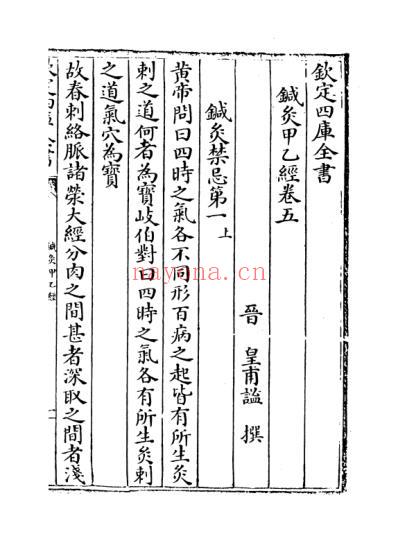 欽定四庫全書
鍼灸甲乙經卷五
晉 皇甫謐 撰
鍼灸禁忌第一上
黄帝問曰四時之氣各不同形百病之起皆有所生灸
刺之道何者為寳岐伯對曰四時之氣各有所生灸刺
之道氣穴為寳
故春刺絡脈諸滎大經分肉之間甚者深取之間者淺
鍼灸甲乙經
nayona.cn